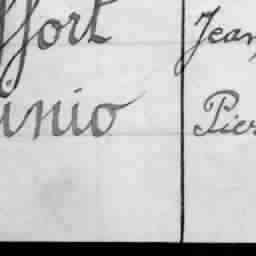 ffort Jean
inio Pier